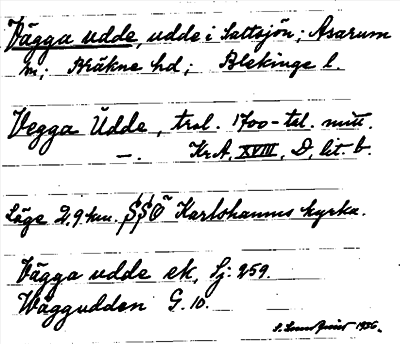 Vägga udde, udde i Saltsjön; Asarum
sn; Bräkne hd; Blekinge l.
Vegga Udde, trol. 1700-tal. mitt.
—. Kr.A. XVIII, D, lit. b.
Läge 2,9 km. SSO Karlshamns kyrka.
Vägga udde ek, Sj. 259.
Väggudden G. 10.
1936.